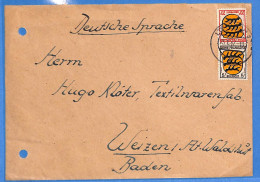 Deutsche Sprache
Herrn
Hugo Klöter, Textilwarenfab.
Weizen
Baden